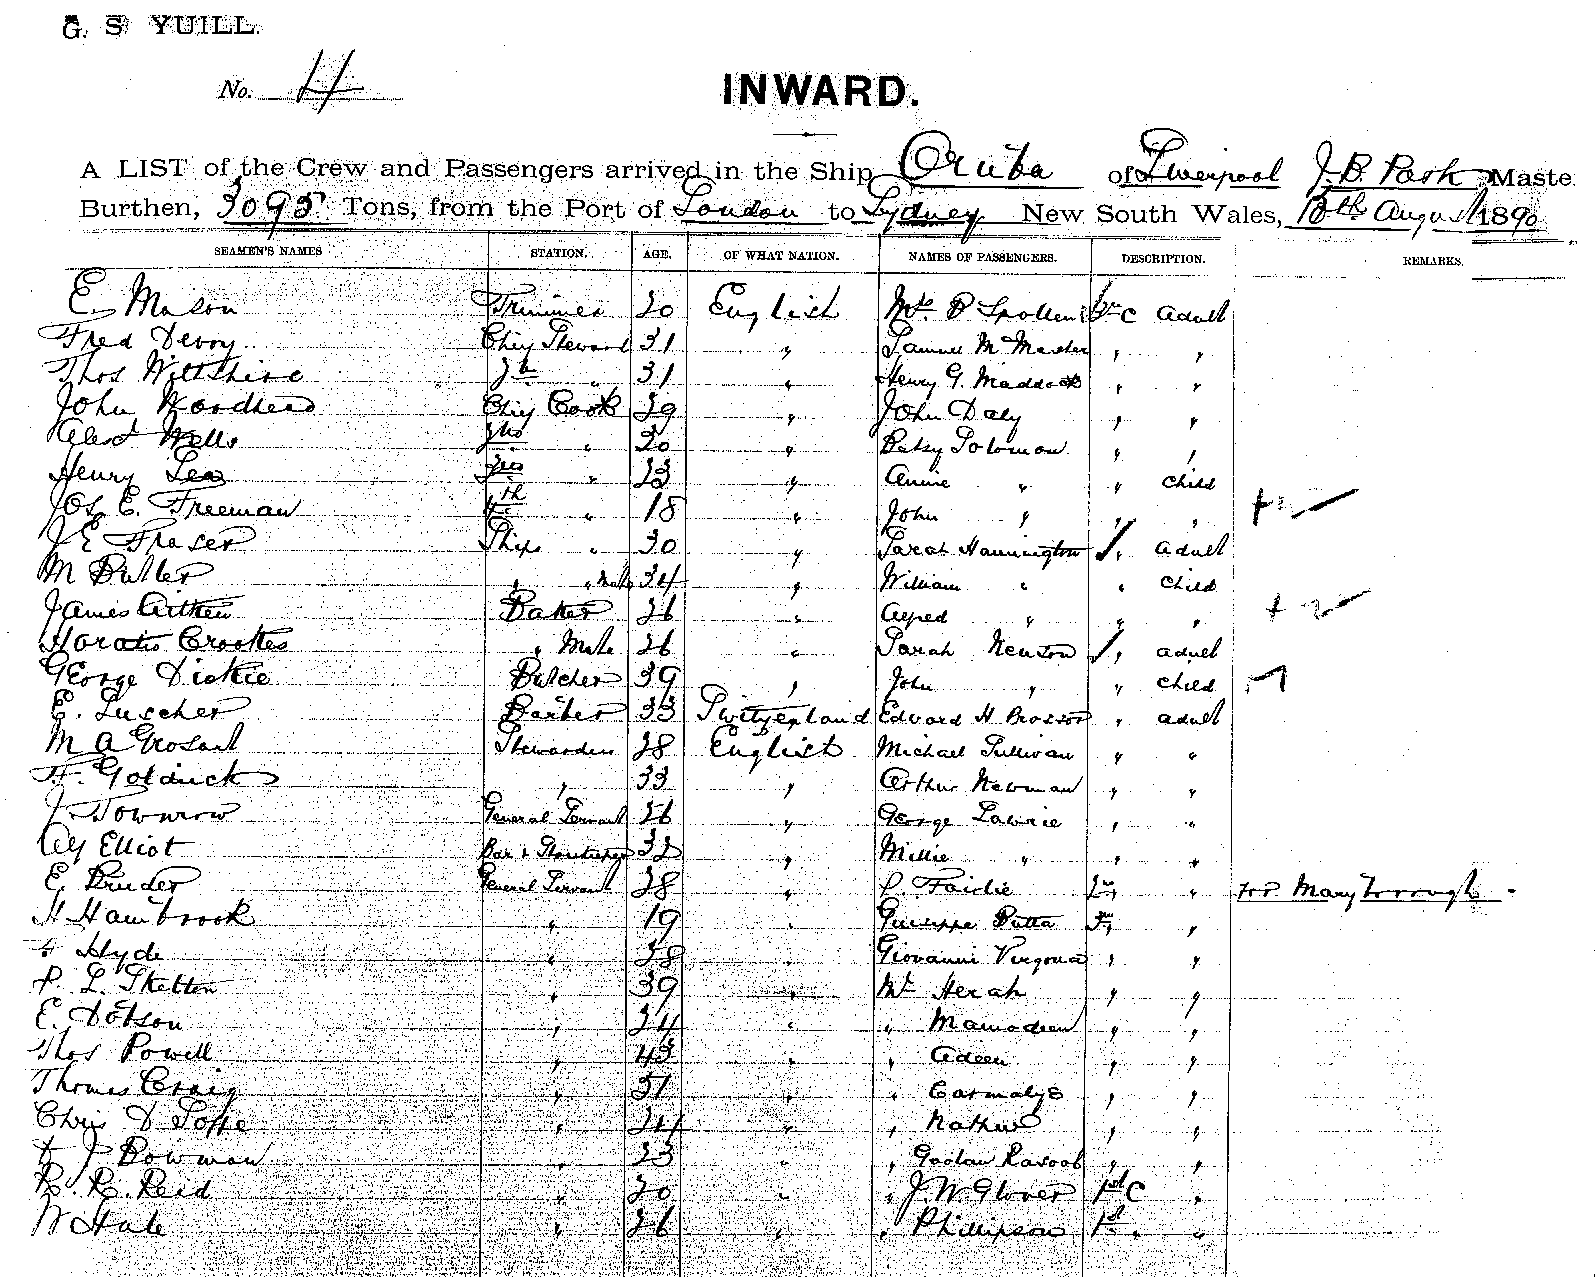 G. S. YUILL.
No. 4
INWARD.
A LIST of the Crew and Passengers arrived in the Ship Oruba of Liverpool J. B. Park Maste
Burthen, 3095 Tons, from the Port of London to Sydney New South Wales, 13th August 1890
SEAMEN'S NAMES STATION. AGE. OF WHAT NATION. NAMES OF PASSENGERS. DESCRIPTION. REMARKS.
E. Mason Trimmer 20 English Mrs B C adult
Fred Devoy Chief Steward 31 " Samuel McMaster " "
Thos Wiltshire 2nd " 31 " Henry G. Maddock " "
John Woodhead Chief Cook 29 " John Daly " "
Wells " 20 " Betsy Solomon " "
Henry Lea " 23 " Annie " " child
Jos. E. Freeman 4th " 18 " John " " "
J E Fraser Ships " 30 " Sarah Hannington " adult
M Butler " " Mate 34 " William " " child
James Aitken Baker 26 " Alfred " " "
Horatio Crookes " Mate 26 " Sarah Newson " adult
George Dickie Butcher 39 " John " " child
E. Luscher Barber 33 Switzerland Edward H " adult
M A Grosart Stewardess 28 English Michael Sullivan " "
Golduck " 33 " Arthur Newman " "
J. Townrow General Servant 26 " George Lawrie " "
Alf Elliot Bar & Storekeeper 32 " Millie " " "
E. Bruder General Servant 28 " Fairlie " for Maryborough
H Hambrook " 19 " Giuseppe Butta "
Hyde " 38 " Giovanni Virgona " "
P. L. Skelton " 39 " Mr Herah " "
E. Dobson " 24 " " "  "
Thos Powell " 43 " " Adeen " "
Thomas Craig " 31 " " " "
Chris D " 24 " " " "
J Bowman " 23 " " " "
R. R. Reid " 20 " " J. W Glover 1st C "
W Hale " 26 " " Phillipson 1st " "